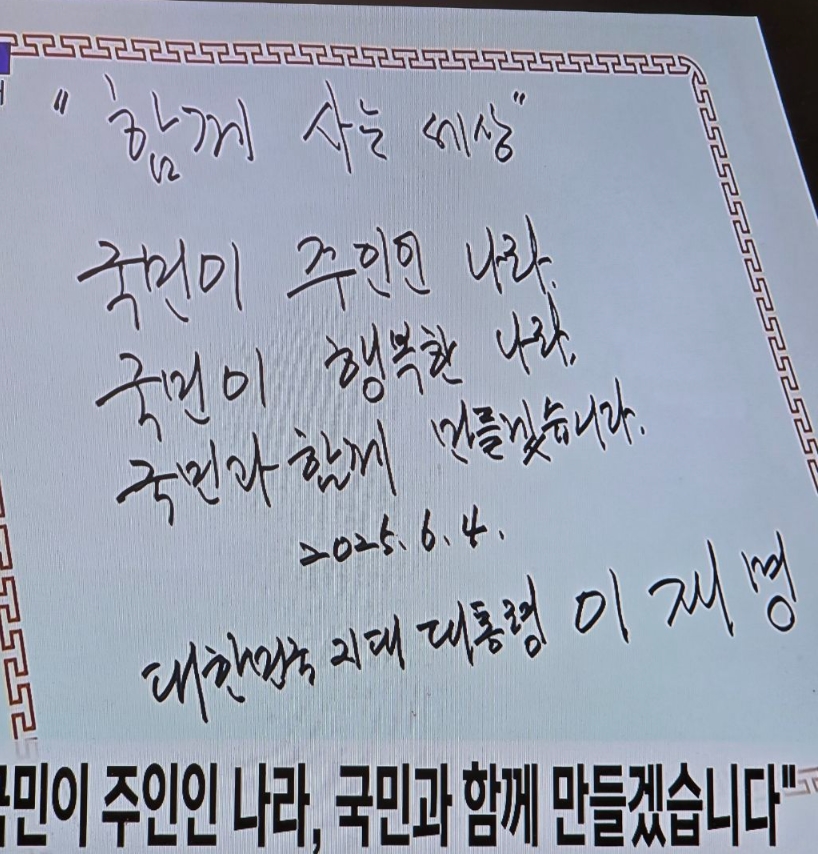 "함께 사는 세상"
국민이 주인인 나라,
국민이 행복한 나라,
국민과 함께 만들겠습니다.
2025. 6. 4.
대한민국 21대 대통령 이재명
국민이 주인인 나라, 국민과 함께 만들겠습니다"